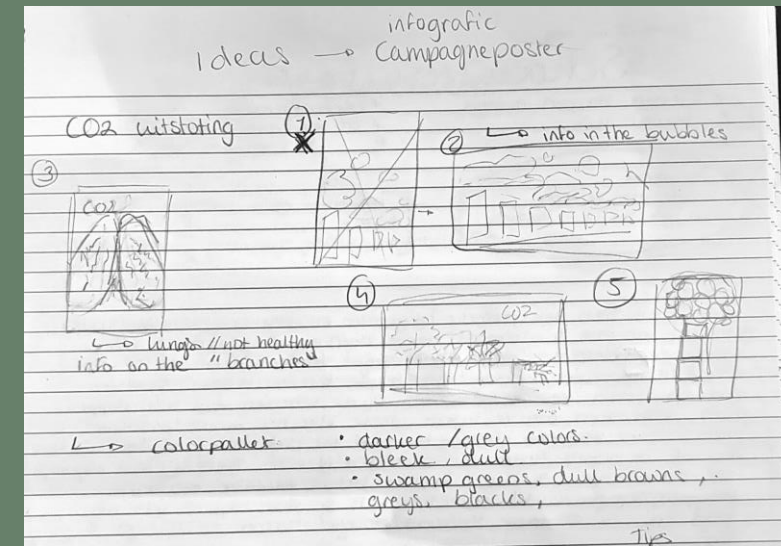 infografic
Ideas → Campagneposter
CO2 uitstoting
1
2
↳ info in the bubbles
3
CO2
↳ lungs // not healthy
info on the "branches"
4
CO2
5
↳ colorpallet
• darker / grey colors.
• bleek, dull
• swamp greens, dull browns,
greys, blacks,
Tips